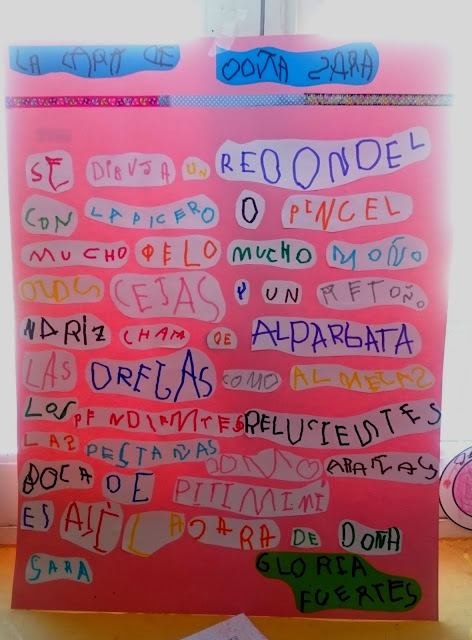 LA CARA DE DOÑA SARA
SE DIBUJA UN REDONDEL
CON LAPICERO O PINCEL
MUCHO PELO MUCHO MOÑO
OJOS CEJAS Y UN RETOÑO
NARIZ CHATA DE ALPARGATA
LAS OREJAS COMO ALMEJAS
LOS PENDIANTES RELUCIENTES
LAS PESTAÑAS COMO ARAÑAS
BOCA DE PITIMIMÍ
ES ASÍ LA CARA DE DOÑA
SARA GLORIA
FUERTES